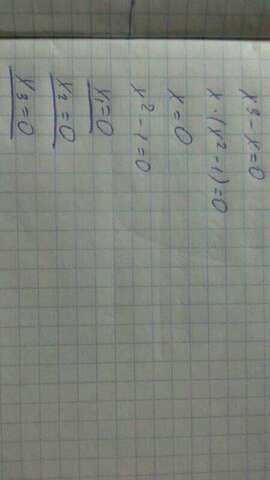 x³ - x = 0
x · (x² - 1) = 0
x = 0
x² - 1 = 0
x₁ = 0
x₂ = 0
x₃ = 0